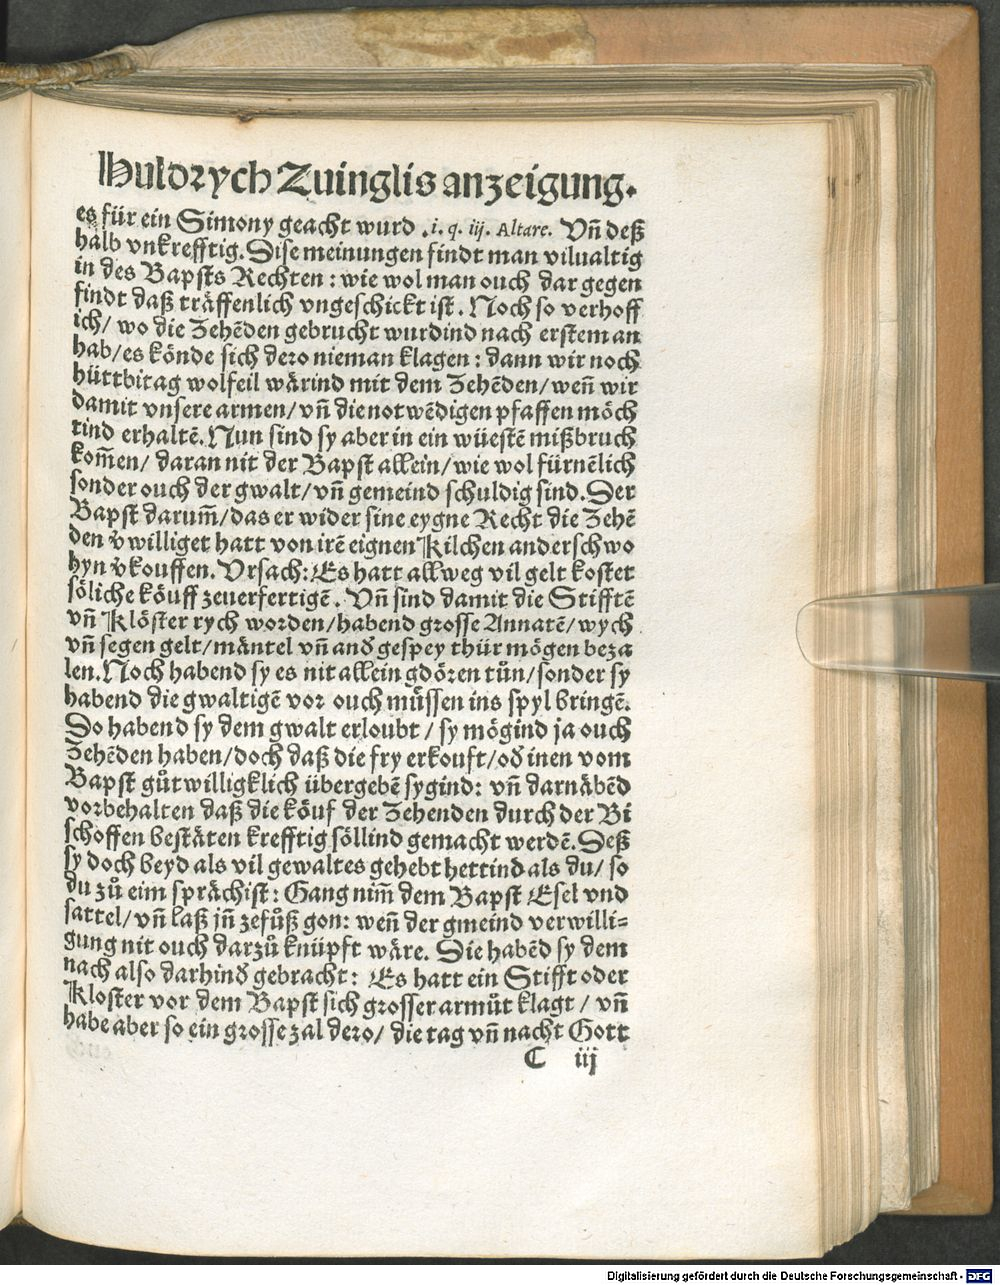 Huldrych Zuinglis anzeigung.
es für ein Simony geacht wurd .i. q. iij. Altare. Vñ deß
halb vnkrefftig. Dise meinungen findt man vilualtig
in des Bapsts Rechten : wie wol man ouch dar gegen
findt daß träffenlich vngeschickt ist. Noch so verhoff
ich/ wo die Zehẽden gebrucht wurdind nach erstem an
hab/ es könde sich dero nieman klagen : dann wir noch
hüttbitag wolfeil wärind mit dem Zehẽden/ weñ wir
damit vnsere armen/ vñ die notwẽdigen pfaffen möch
tind erhaltẽ. Nun sind sy aber in ein wüestẽ mißbruch
kom̃en/ daran nit der Bapst allein/ wie wol fürnẽlich
sonder ouch der gwalt/ vñ gemeind schuldig sind. Der
Bapst darum̃/ das er wider sine eygne Recht die Zehẽ
den v̉williget hatt von irẽ eignen Kilchen anderschwo
hyn v̉kouffen. Vrsach: Es hatt allweg vil gelt kostet
söliche köuff zeuerfertigẽ. Vñ sind damit die Stifftẽ
vñ Klöster rych worden/ habend grosse Annatẽ/ wych
vñ segen gelt/ mäntel vñ and̛ gespey thür mögen beza
len. Noch habend sy es nit allein gdören tůn/ sonder sy
habend die gwaltigẽ vor ouch müssen ins spyl bringẽ.
So habend sy dem gwalt erloubt / sy mögind ja ouch
Zehẽden haben/ doch daß die fry erkouft/ od̛ inen vom
Bapst gůtwilligklich übergebẽ sygind: vñ darnäbẽd
vorbehalten daß die köuf der Zehenden durch der Bi
schoffen bestäten krefftig söllind gemacht werdẽ. Deß
sy doch beyd als vil gewaltes gehebt hettind als du/ so
du zů eim sprächist : Gang nim̃ dem Bapst Esel vnd
sattel/ vñ laß jñ zefůß gon: weñ der gmeind verwilli=
gung nit ouch darzů knüpft wäre. Die habẽd sy dem
nach also darhind̛ gebracht : Es hatt ein Stifft oder
Kloster vor dem Bapst sich grosser armůt klagt / vñ
habe aber so ein grosse zal dero/ die tag vñ nacht Gott
C iij
Digitalisierung gefördert durch die Deutsche Forschungsgemeinschaft - DFG